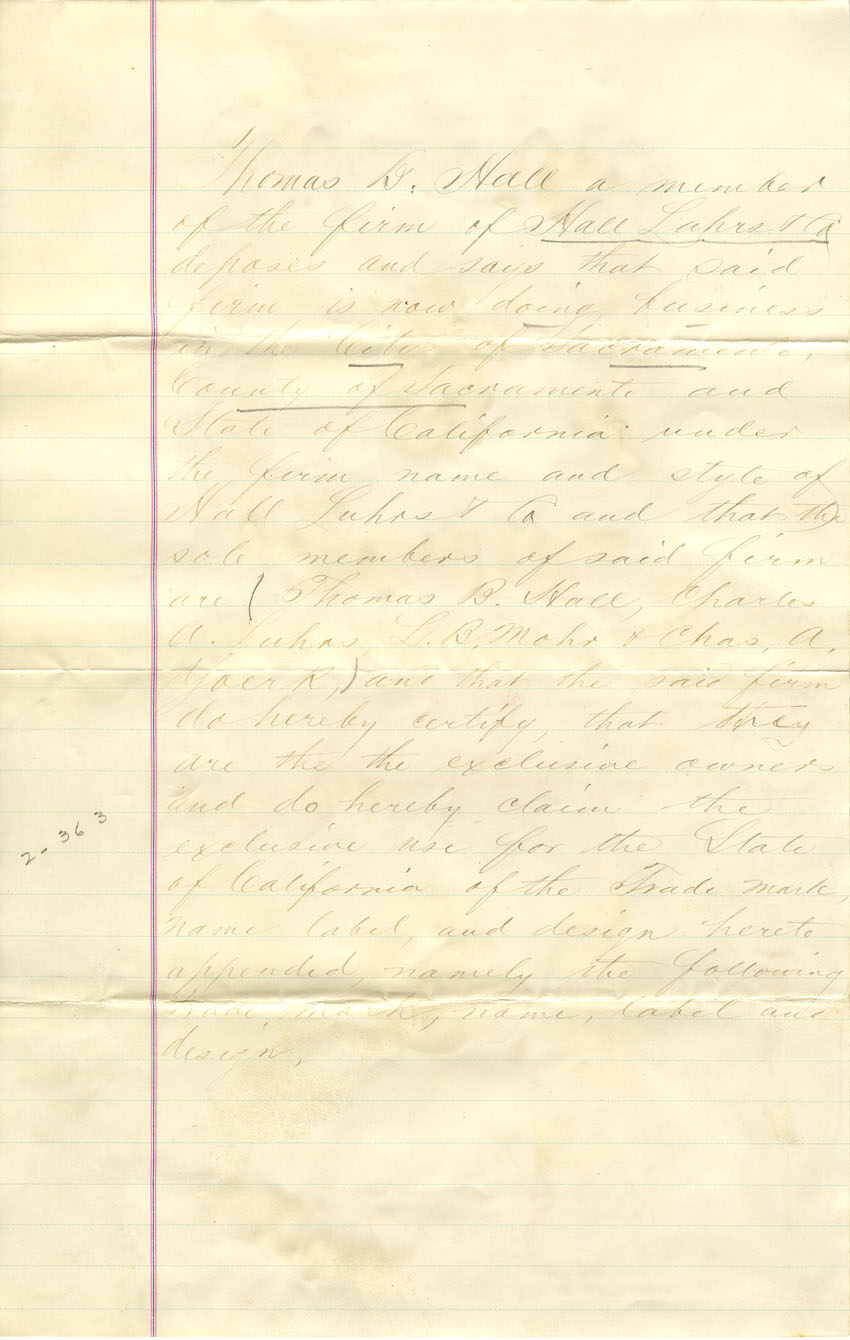 Thomas B. Hall a member
of the firm of Hall Luhrs & Co
deposes and says that said
firm is now doing business
in the City of Sacramento,
County of Sacramento and
State of California under
the firm name and style of
Hall Luhrs & Co and that the
sole members of said firm
are (Thomas B. Hall, Charles
A. Luhrs, L. B. Mohr & Chas, A,
Yoerk,) and that the said firm
do hereby certify, that they
are the the exclusive owners
and do hereby claim the
exclusive use for the State
of California of the Trade mark,
name label, and design hereto
appended, namely the following
trade mark, name, label and
design,
2-363